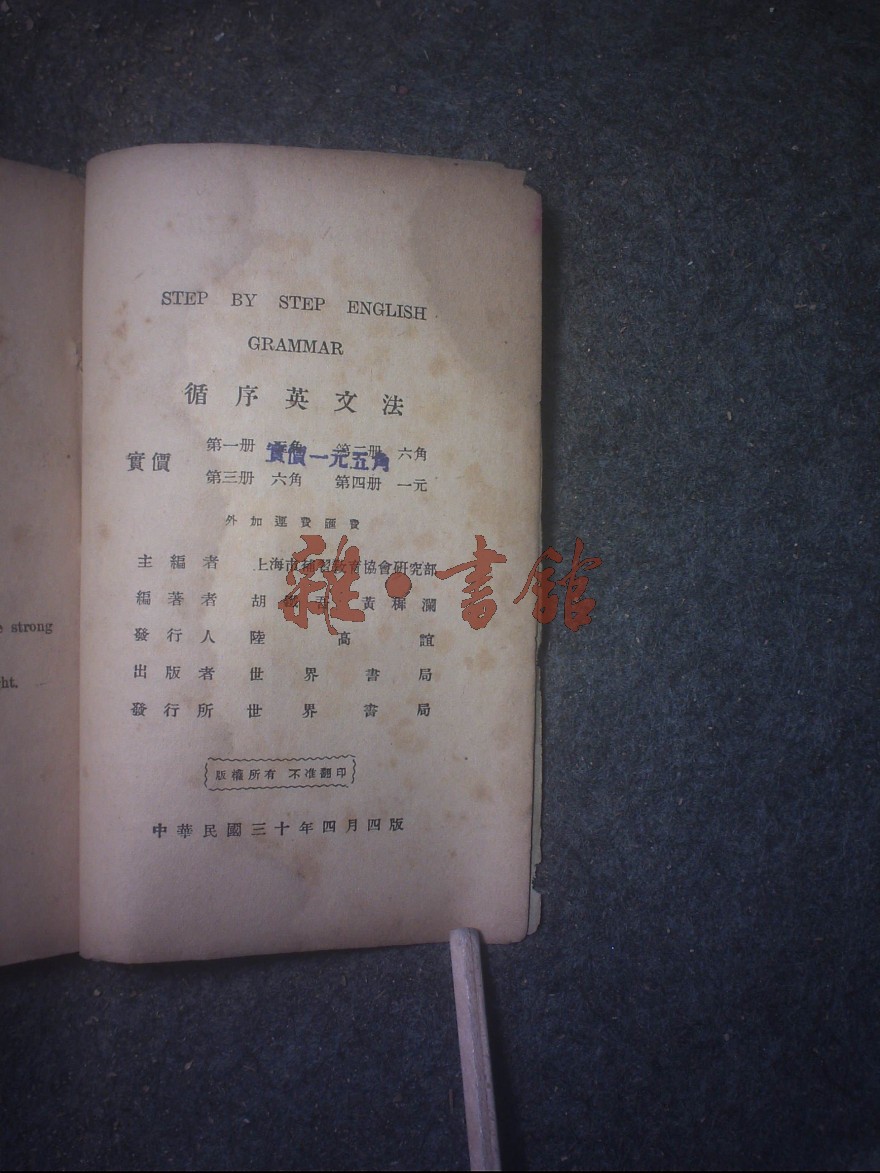 STEP BY STEP ENGLISH
GRAMMAR
循序英文法
實價
第一册 角 第二册 六角
實價一元五角
第三册 六角 第四册 一元
外加運費匯費
主編者 上海市補習教育協會研究部
編著者 胡 黃穉瀾
發行人 陸高誼
出版者 世界書局
發行所 世界書局
版權所有 不准翻印
中華民國三十年四月四版
e strong
ht.
雜·書館